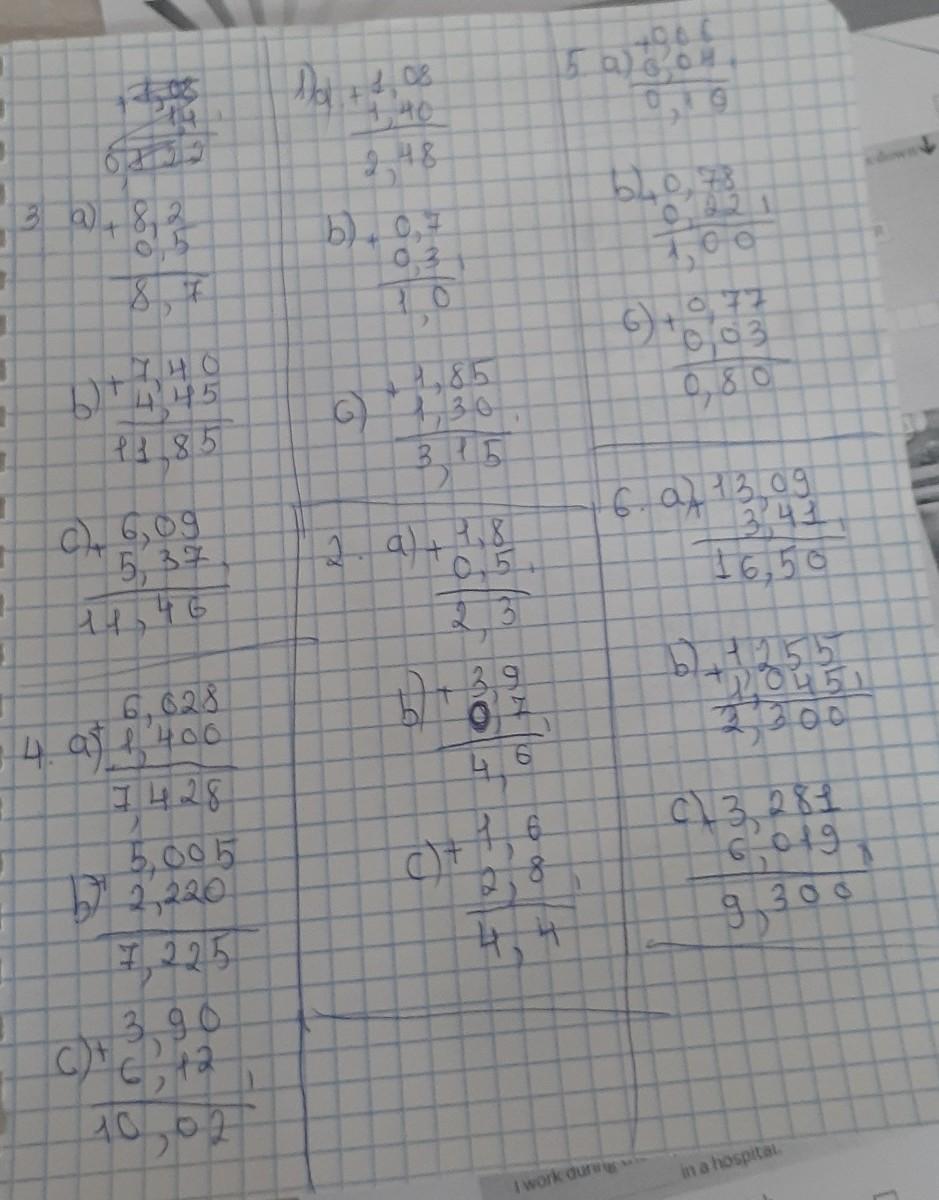 3 a) + 8,2
0,5
8,7
b) + 7,40
4,45
11,85
c) + 6,09
5,37
11,46
4. a) + 6,028
1,400
7,428
b) + 5,005
2,220
7,225
c) + 3,90
6,12
10,02
1) a + 1,08
1,40
2,48
b) + 0,7
0,3
1,0
c) + 1,85
1,30
3,15
2. a) + 1,8
0,5
2,3
b) + 3,9
0,7
4,6
c) + 1,6
2,8
4,4
5. a) + 0,06
0,04
0,10
b) + 0,78
0,22
1,00
c) + 0,77
0,03
0,80
6. a) + 13,09
3,41
16,50
b) + 1,255
1,045
2,300
c) + 3,281
6,019
9,300
down
I work during
in a hospital.